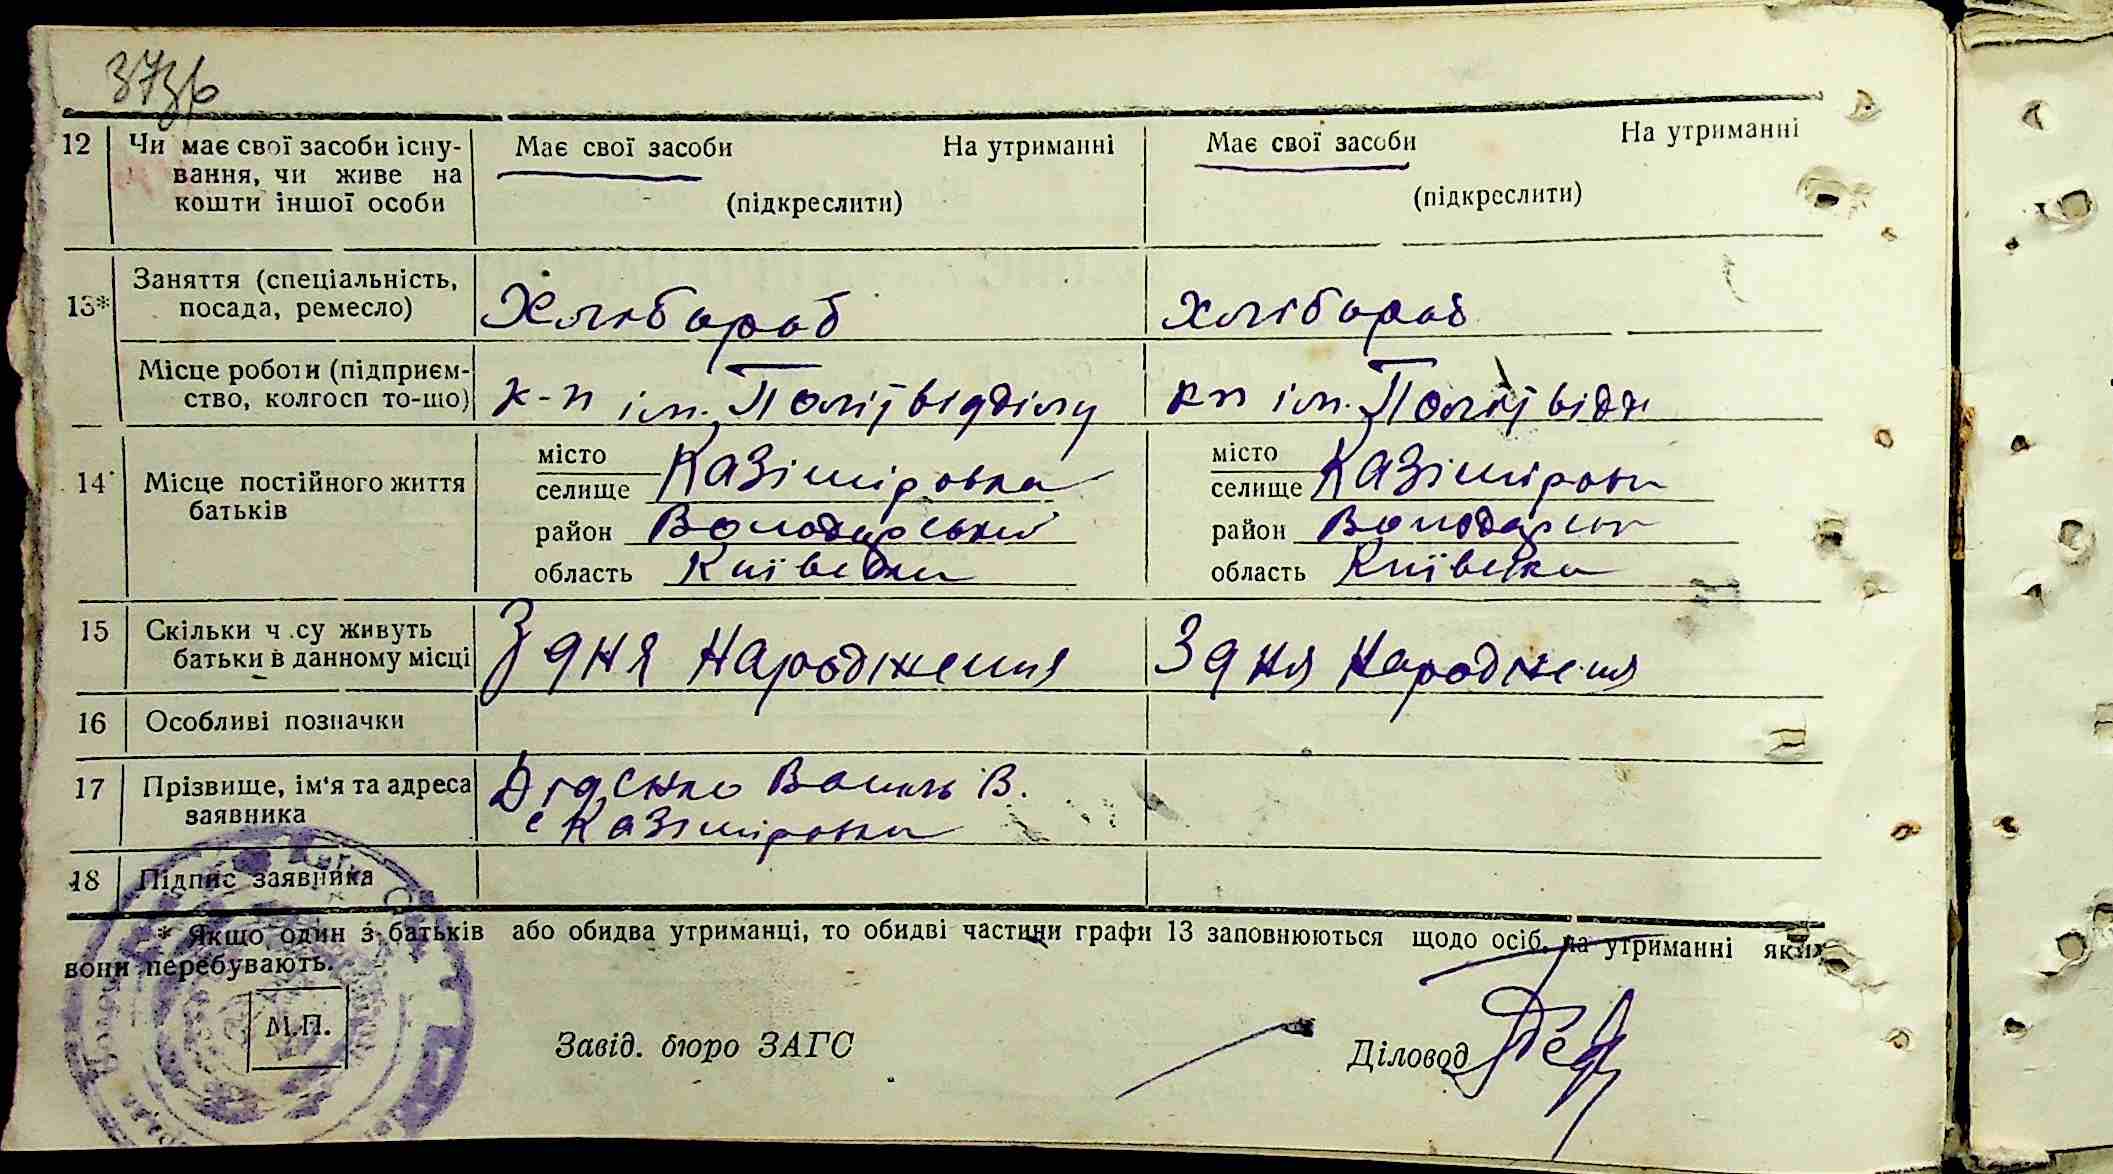 373б
12 Чи має свої засоби існу- Має свої засоби На утриманні Має свої засоби На утриманні
вання, чи живе на
кошти іншої особи (підкреслити) (підкреслити)
13* Заняття (спеціальність,
посада, ремесло) Хлібораб Хлібораб
Місце роботи (підприєм-
ство, колгосп то-що) к-п ім. Політвідділу кп ім. Політвідд
14 Місце постійного життя
батьків
місто
селище Казіміровка
район Володарський
область Київська
місто
селище Казіміровк
район Володарськ
область Київська
15 Скільки ч су живуть
батьки в данному місці З дня народження З дня народження
16 Особливі позначки
17 Прізвище, ім'я та адреса Діденко Василь В.
заявника с Казіміровка
18 Підпис заявника
* Якщо один з батьків або обидва утриманці, то обидві частини графи 13 заповнюються щодо осіб, на утриманні яких
вони перебувають.
М.П.
Завід. бюро ЗАГС Діловод